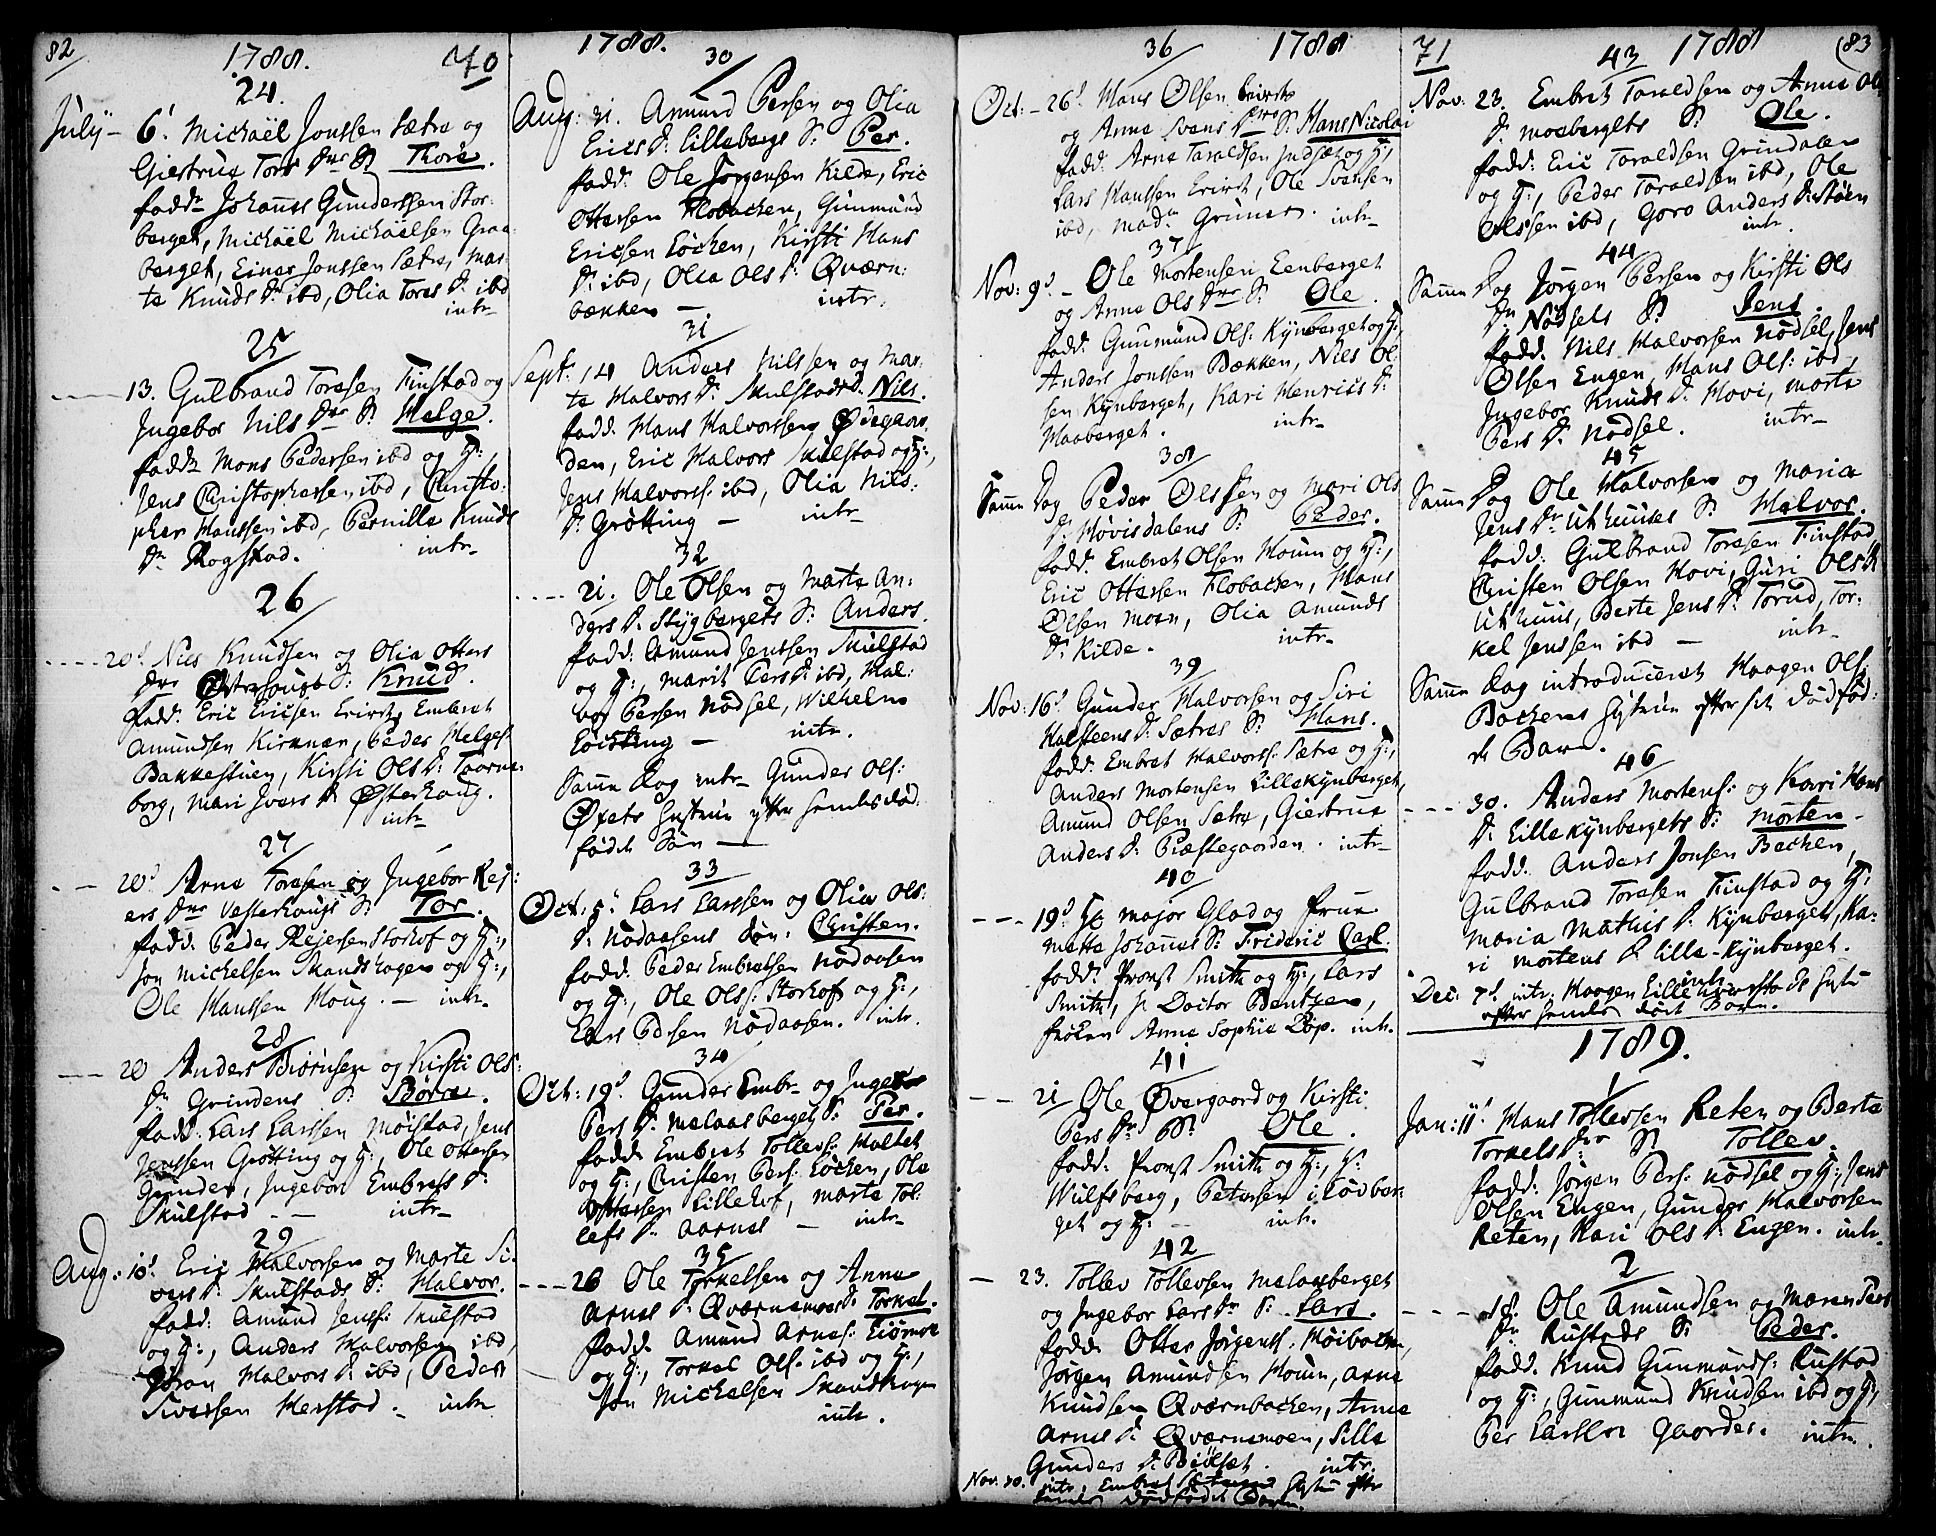 82
1788.
70
24.
July – 6t. Michaël Jonssen Sætre og
Giertrue Tors Dtr S: Thore.
fadd: Johannes Gunderssen Stor-
berget, Michaël Michaëlsen Graa-
berget, Einer Jonssen Sætre, Mar-
te Knuds Dr. ibd, Olia Tores D: ibd
intr
25
13. Gulbrand Toresen Finstad og
Ingebor Nils Dtr S: Helge.
fadd: Mons Pedersen ibd og H:,
Jens Christophersen ibd, Christo-
pher Hanssen ibd, Pernille Knuds
Dr Rogstad. intr
26
20d. Niels Knudsen og Olia Otters
Dtr Østerhougs S: Knud.
fadd: Eric Ericsen Evirst, Embret
Amundsen Kirknær, Peder Helges:
Bakkestuen, Kirsti Ols D: Taarne-
borg, Mari Ivers D: Østerhoug.
intr
27
20d Arne Toresen og Ingebor Rej:
ers Dtr Vesterhougs S: Tor.
fadd: Peder Rejersen Storhof og H:,
Jon Michelsen Skandshagen og H:,
Ole Hanssen Houg. – intr.
28
20 Anders Biørnsen og Kirsti Ols:
Dr Grindens S: Børre.
fadd. Lars Larssen Møistad, Jens
Jenssen Grøtting og H:, Ole Ottersen
Grinder, Ingebor Embrets D:
Skulstad – – intr
29
Aug: 10d. Eric Halvorsen og Marte Si-
vers D: Skulstads S: Halvor.
fadd: Amund Jenss: Skulstad
og H:, Anders Halvorsen ibd,
Gøran Halvors D: ibd, Peder
Siversen Herstad – intr
1788.
30
Aug: 31. Amund Persen og Olia
Erics D: Lillebergs S: Per.
fadd: Ole Jørgensen Kilde, Eric
Ottersen Flobachen, Gunmund
Ericsen Løchen, Kirsti Hans
D: ibd, Olia Ols D: Qværn-
bækken – intr.
31
Sept: 14 Anders Nilssen og Mar-
te Halvors D: Skulstads S: Nils.
fadd: Hans Halvorssen Ødegaar-
den, Eric Halvors Skulstad og H:,
Jens Halvorss: ibd, Olia Nils:
D: Grøtting – intr
32
21. Ole Olsen og Marte An-
ders D: Stygbergets S: Anders.
fadd: Amund Jenssen Skulstad
og H:, Marit Pers D: ibd, Hal-
vor Persen Nødsel, Wilhelm
Løisting – intr.
Samme Dag intr Gunder Ols:
Øxets Hustrue efter hendes død-
fødde Søn –
33
Oct: 5t. Lars Larssen og Olia Ols:
D: Nødaasens Søn: Christen.
fadd. Peder Embretsen Nødaasen
og H:, Ole Olss: Storhof og H:,
Lars Pedsen Nødaasen. intr.
34
Oct: 19d. Gunder Embr– og Ingebor
Pers D: Melaasberget S: Per.
fadd: Embret Tollevs: Holtet
og H:, Christen Pers: Løchen, Ole
Ottersen Lillehof, Marte Tol-
lefs D: Aarnes – intr
35
26 Ole Torkelsen og Anne
Arnes D: Qværnemoes S: Torkel.
fadd. Amund Arnes:
og H:, Torkel Ols: ibd og H:,
Jon Michelsen Skandshagen
intr.
36
1788
Oct: – 26d Hans Olsen Evirst
og Anne Svens Dtr S: Hans Nicolai
fadd: Arne Taraldsen Indset og H:,
Lars Hanssen Evirst, Ole Svensen
ibd, Mad. Gruner. intr–
37
Nov: 9d – Ole Mortensen Eenberget
og Anne Ols Dtr S: Ole.
fadd: Gunmund Ols: Kynberget og H:,
Anders Jonssen Bækken, Niels Ol-
sen Kynberget, Kari Henrics D:
Maaberget. intr–
38
Samme Dag Peder Olssen og Mari Ols
D: Hovisdalens S: Peder.
fadd: Embret Olsen Moum og H:,
Eric Ottersen Flobachen, Hans
Olsen Moen, Olia Amunds
D: Kilde. intr–
39
Nov: 16d Gunder Halvorsen og Siri
Halsteens D: Sætres S: Hans.
fadd: Embret Halvorss: Sætre og H:,
Anders Mortensen Lillekynberget,
Amund Olsen Sætre, Giertrue
Anders D: Præstegaarden. intr–
40
– – – 19d Hr Major Glad og Frue
Mette Johannes S: Frideric Carl.
fadd: Provst Smith og H:, Lars
Smith, Hr Doctor Bentzen,
Frøken Anne Sophie Løp. intr.
41
– – 21 Ole Øvergaard og Kirsti
Pers Dr S: Ole.
fadd: Provst Smith og H:, H:
Wulfsberg, Petersen i Lødber-
get og H: – intr.
42
– 23. Tollev Tollevsen Melaasberget
og Ingebor Lars Dr S: Lars.
fadd: Otter Jørgenss. Høibachen,
Jørgen Amundsen Moum, Arne
Knudsen Qværnbachen, Anne
Arnes D: Qværnemoen, Sille
Gunders D: Biølset. intr.
Nov: 30. intr. Embret Hustrue efter
hendes Dødfødde Barn.
71
43
1788
(83
Nov: 23. Embret Taraldsen og Anne Ols
D: Moebergets S: Ole.
fadd: Eric Taraldsen Grindalen
og H:, Peder Taraldsen ibd, Ole
Olssen ibd, Goro Anders D: Støen
intr.
44
Samme Dag Jørgen Persen og Kirsti Ols
Dr Nødsels S: Jens.
fadd. Nils Halvorsen Nødsel, Jens
Olsen Engen, Hans Ols: ibd,
Ingebor Knuds D: Hovi, Marte
Pers D: Nødsel. intr–
45
Samme Dag Ole Halvorsen og Maria
Jens Dr Uthuuses S: Halvor.
fadd: Gulbrand Toresen Finstad
Christen Olsen Hovi, Guri Ols D:
Uthuus, Berte Jens D: Torud, Tor-
kel Jenssen ibd – intr–
Samme Dag introduceret Haagen Ols:
Bachens Hustrue efter sit dødfød-
de Barn.
46
– – – 30. Anders Mortens: og Karri Hans
D: Lillekynbergets S: Morten –
fadd: Anders Jonsen Bechen,
Gulbrand Toresen Finstad og H:
Maria Mathis D: Kynberget, Ka-
ri Mortens D: Lille-Kynberget.
intr
Dec: 7d. intr: Haagen Hustr
efter hendes dødf Barn.
1789.
1
Jan: 11t Hans Tollevsen Reten og Berte
Torkels Dtr S: Tollev.
fadd: Jørgen Pers: Nødsel og H:, Jens
Olsen Engen, Gunder Halvorsen
Reten, Kari Ols D: Engen. intr.
2
– – – 18. Ole Amundsen og Maren Pers
Dr Rustads S: Peder.
fadd: Knud Gunmunds: Rustad
og H:, Gunmund Knudsen ibd og H:,
Per Larssen Gaarder. intr.